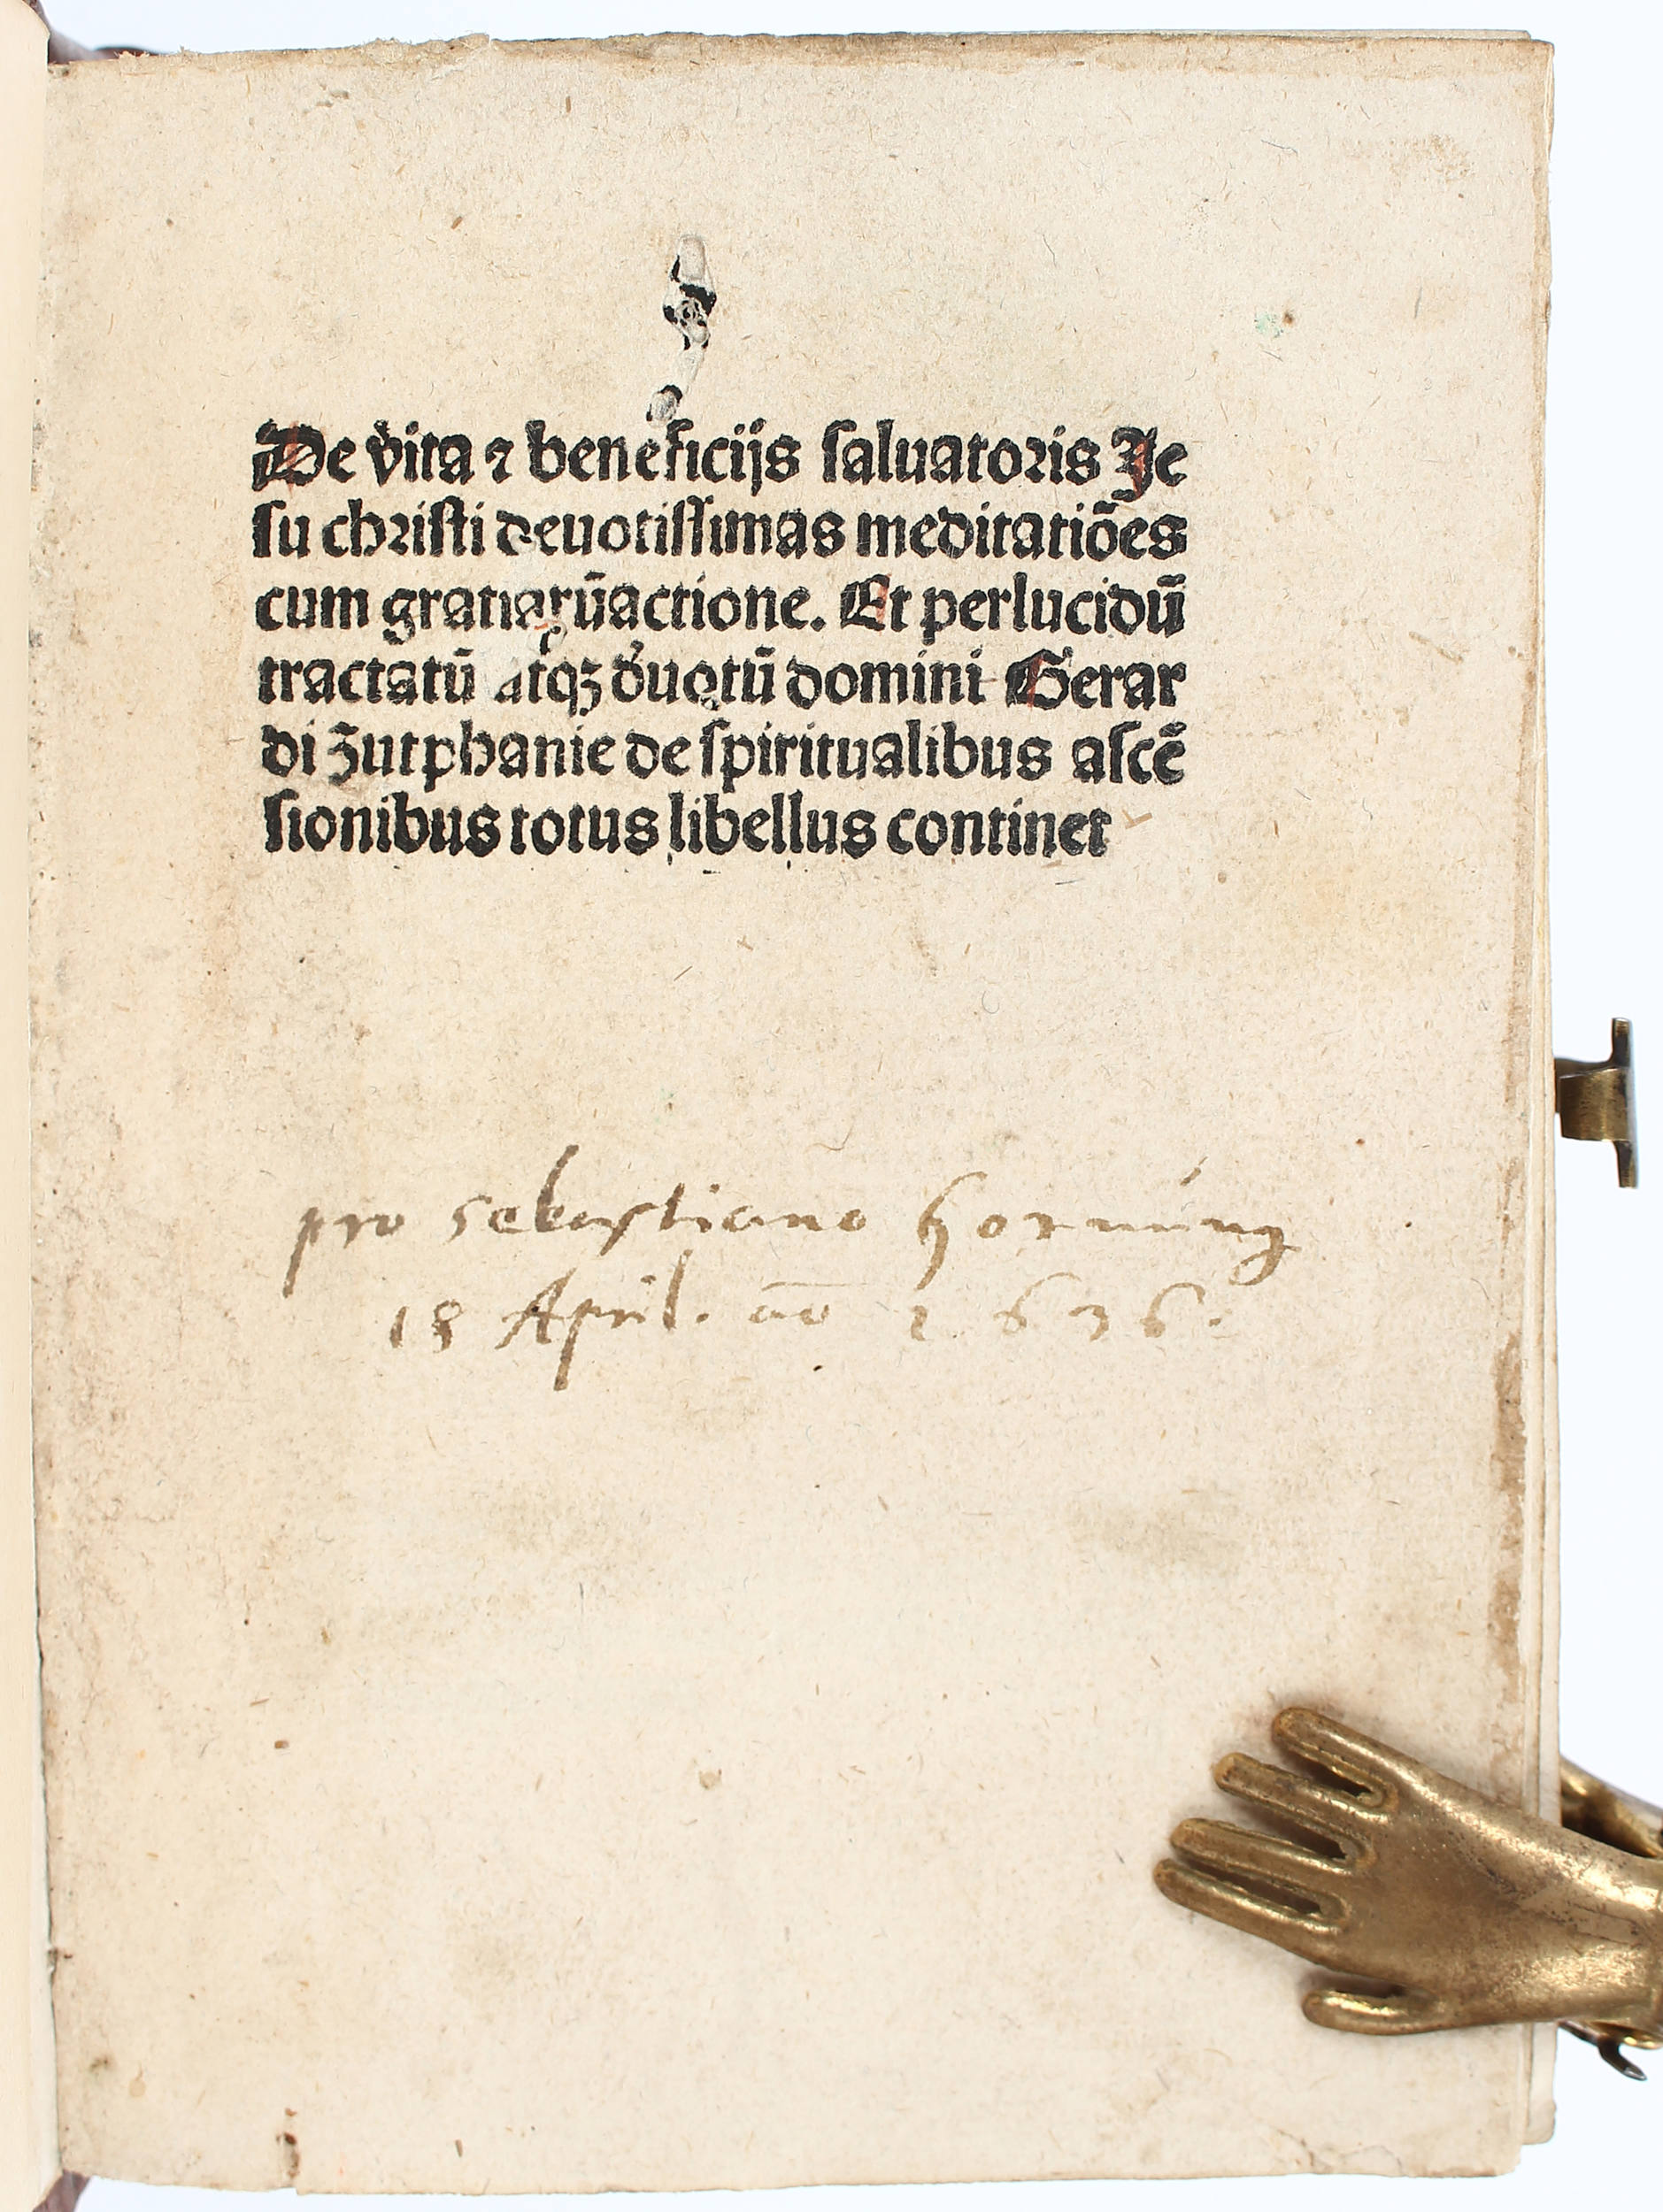 De vita ⁊ beneficijs saluatoris Je
su christi deuotissimas meditatiōes
cum gratiarūactione. Et perlucidū
tractatū atqꝫ d̓uotū domini Gerar
di Zutphanie de spiritualibus ascē
sionibus totus libellus continet
pro sebastiano Hornúng
18 April. aō 1636.